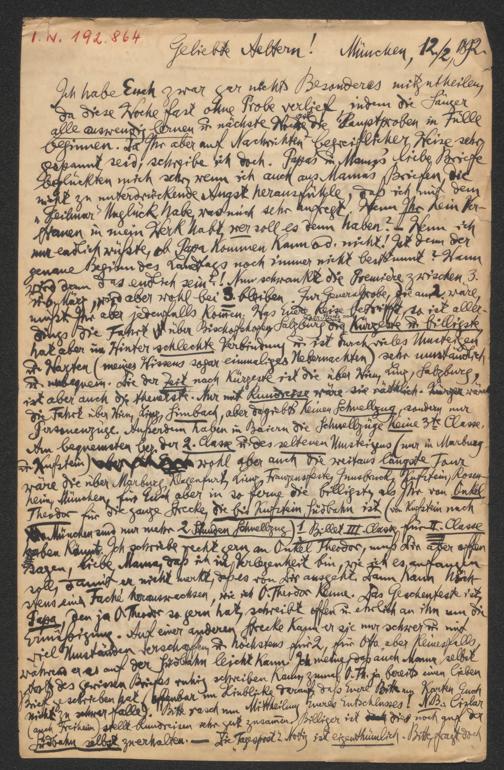 I. N. 192.864
Geliebte Aeltern! München, 12/2 1892.
Ich habe Euch zwar gar nichts Besonderes mitzutheilen,
da diese Woche fast ohne Probe verlief, indem die Sänger
alle auswendig lernen u nächste Woche die Hauptproben in Fülle
beginnen. Da Ihr aber auf Nachrichten begreiflicher Weise sehr
gespannt seid, schreibe ich doch. Papas u Mamas liebe Briefe
beglückten mich sehr, wenn ich auch aus Mamas Briefen die
nicht zu unterdrückende Angst herausfühle, daß ich mit dem
Unglück habe, was mich sehr aufregt. Wenn Ihr kein Ver-
trauen in mein Werk habt, wer soll es denn haben? – Wenn ich
nur endlich wüßte, ob Papa kommen kann od. nicht! Ist denn der
genaue Beginn des Landtags noch immer nicht bestimmt? Wann
wird denn das endlich sein?! Nun schwankt die Premiere zwischen 3.
u 6. März, wird aber wohl bei 3. bleiben. Zur Generalprobe, die am 2. wäre,
müßt Ihr aber jedenfalls kommen. Was nun Reise betrifft, so ist aller-
dings die Fahrt über Bischofshofen Salzburg die kürzeste u billigste,
hat aber im Winter schlechte Verbindung u ist durch vieles Umsteigen
u Warten (meines Wissens sogar einmaliges Uebernachten) sehr umständlich
u unbequem. Die der Zeit nach kürzeste ist die über Wien, Linz, Salzburg,
ist aber auch die theuerste. Nur mit Rundreise wäre sie räthlich. Kürzer wäre
die Fahrt über Wien, Linz, Simbach, aber da giebts keinen Schnellzug, sondern nur
Personenzüge. Außerdem haben in Baiern die Schnellzüge keine 3te Classe.
Am bequemsten bez. der 2. Classe u des seltenen Umsteigens (nur in Marburg
u Kufstein) wohl aber auch die weitaus längste Tour
wäre die über Marburg, Klagenfurt, Lienz, Franzensfeste, Innsbruck, Kufstein, Rosen-
heim, München, für Euch aber in so ferne die billigste, als Ihr von Onkel
Theodor für die ganze Strecke, die bis Kufstein Südbahn ist (von Kufstein nach
München sind nur mehr 2 Stunden Schnellzug) 1 Billet III. Classe für II. Classe
haben könnt. Ich schreibe recht gern an Onkel Theodor, muß Dir aber offen
sagen, liebe Mama, daß ich in Verlegenheit bin, wie ich es anfangen
soll, damit er nicht merkt, daß es von Dir ausgeht. Dann kann höch-
stens eine Fache herauswachsen, wie ich O. Theodor kenne. Das Gescheiteste ist,
Papa, den ja O. Theodor so gern hat, schreibt offen u ehrlich an ihn um die
Ermäßigung. Auf einer anderen Strecke kann er sie nur schwer u mit
viel Umständen verschaffen u höchstens für 2, für Otto aber keinesfalls,
während er es auf der Südbahn leicht kann. Ich meine, daß auch Mama selbst
trotz des gewissen Briefes ruhig schreiben kann, zumal O. Th. ja bereits einen lieben
Brief geschrieben hat, offenbar im Hinblicke darauf, daß Eure Bitte um Karten Euch
nicht zu schwer falle. Bitte rasch um Mittheilung Eures Entschlusses! NB.
auch Freiheim stellt Rundreisen sehr gut zusammen. Billiger ist doch noch auf der
Südbahn selbst zu erhalten. — Die Tagespost Notiz ist eigenthümlich. Bitte, fragt doch